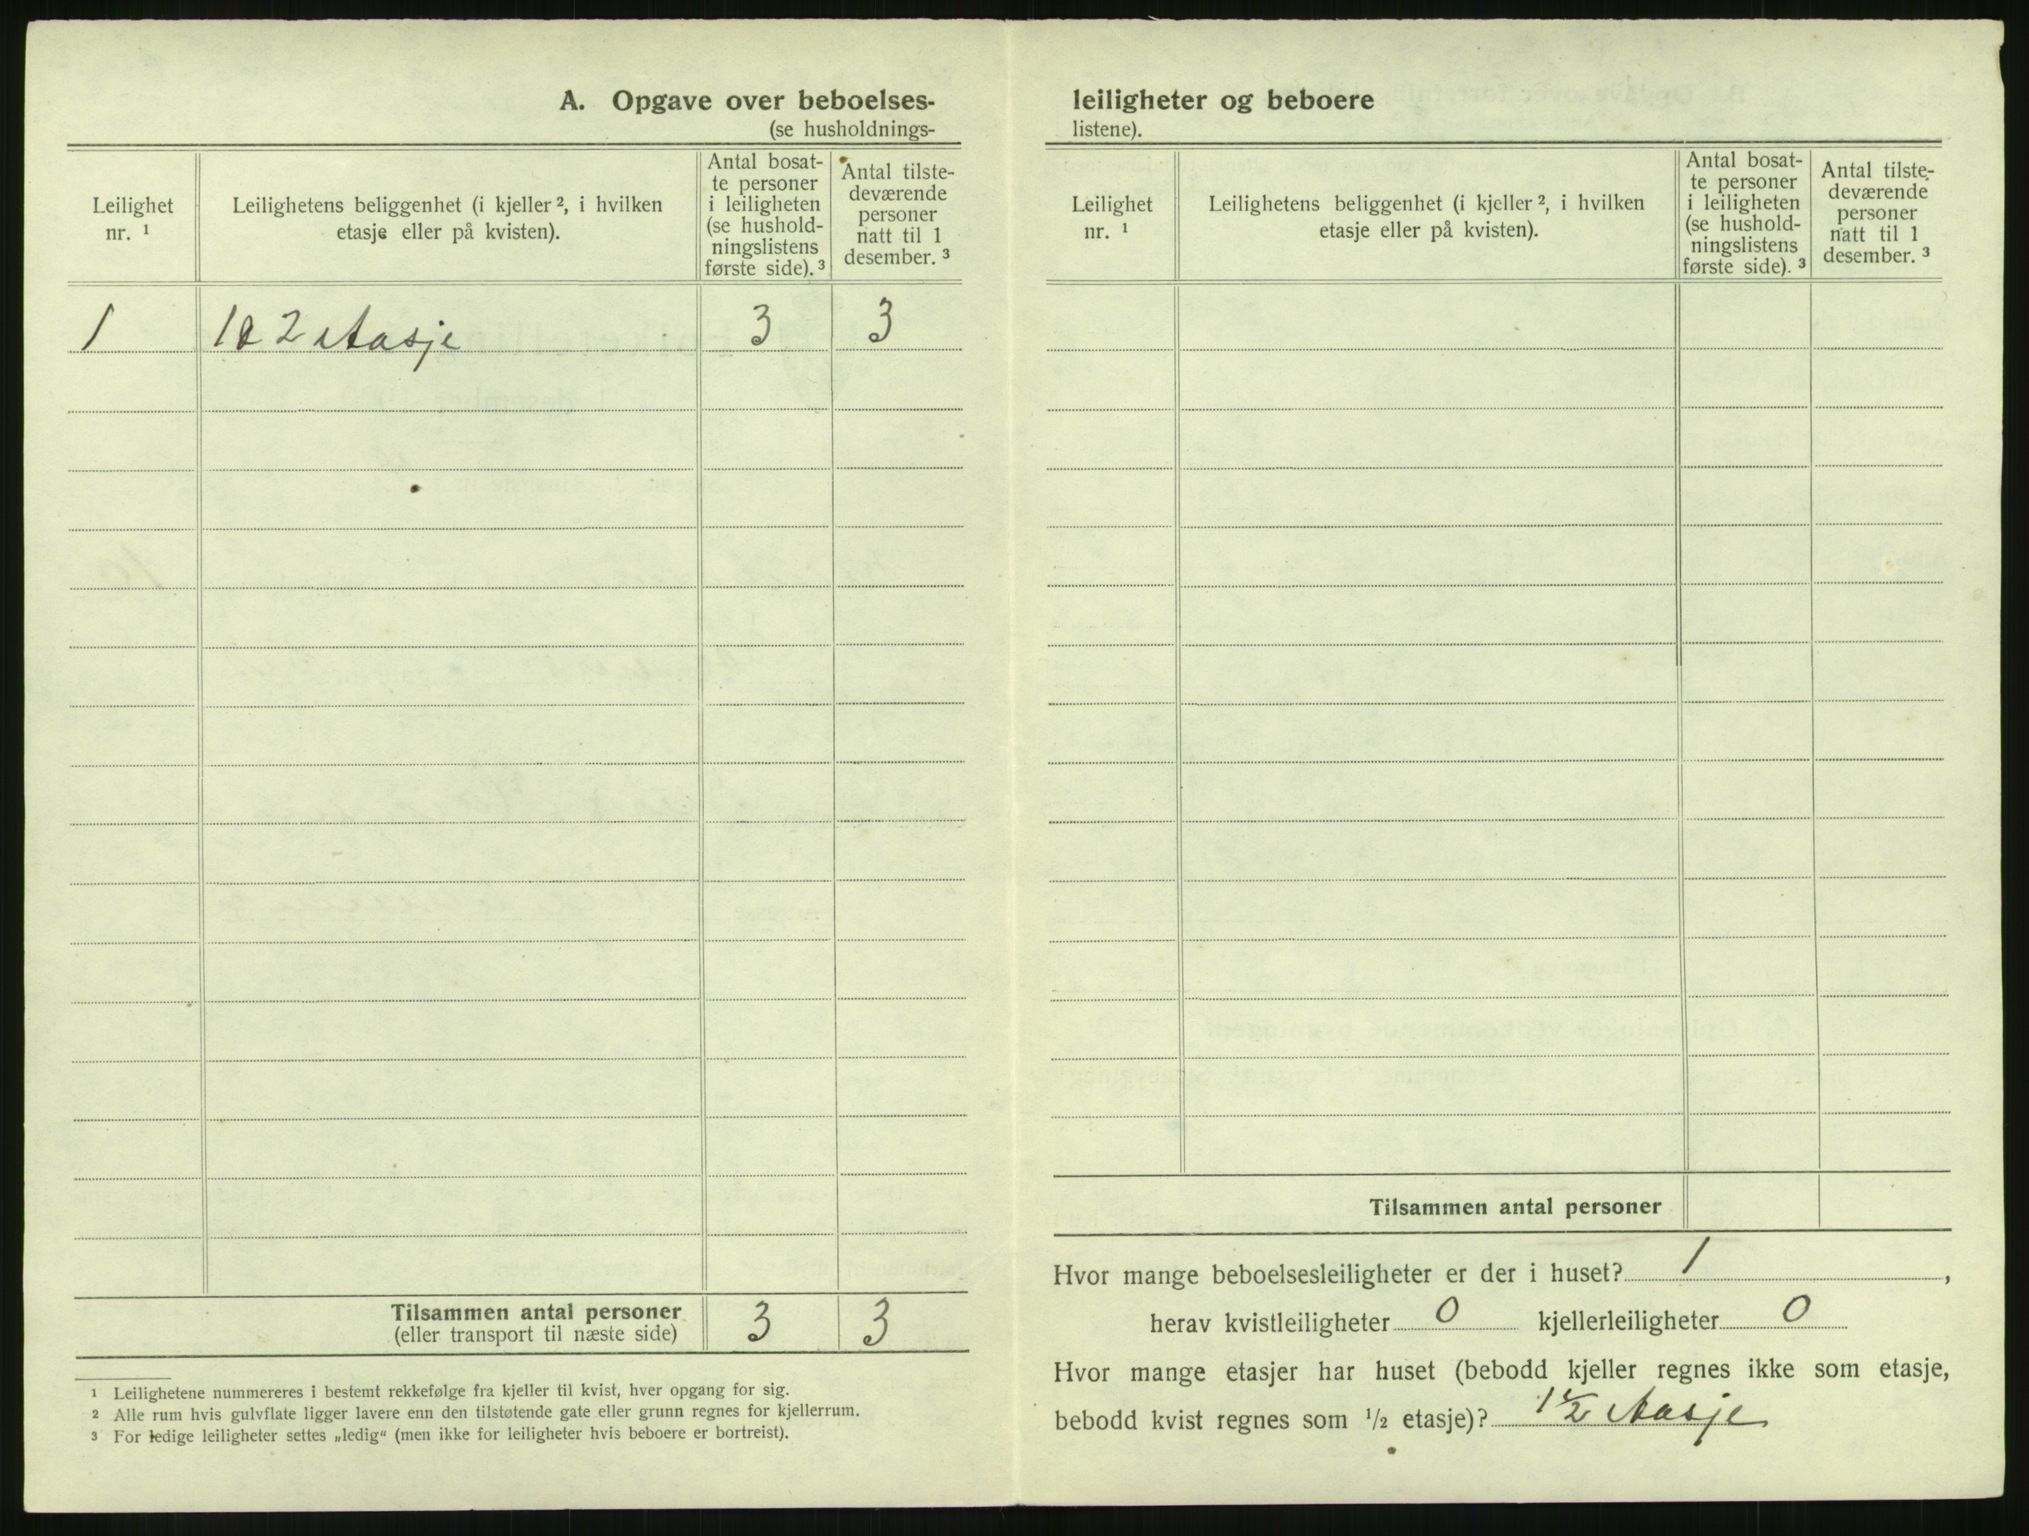 A. Opgave over beboelses-
(se husholdnings-
Leilighet
nr. ¹
Leilighetens beliggenhet (i kjeller ², i hvilken
etasje eller på kvisten).
Antal bosat-
te personer
i leiligheten
(se hushold-
ningslistens
første side). ³
Antal tilste-
deværende
personer
natt til 1
desember. ³
1 2 Aasje 3 3
Tilsammen antal personer 3 3
(eller transport til næste side)
¹ Leilighetene nummereres i bestemt rekkefølge fra kjeller til kvist, hver opgang for sig.
² Alle rum hvis gulvflate ligger lavere enn den tilstøtende gate eller grunn regnes for kjellerrum.
³ For ledige leiligheter settes „ledig“ (men ikke for leiligheter hvis beboere er bortreist).
leiligheter og beboere
listene).
Leilighet
nr. ¹
Leilighetens beliggenhet (i kjeller ², i hvilken
etasje eller på kvisten).
Antal bosat-
te personer
i leiligheten
(se hushold-
ningslistens
første side). ³
Antal tilste-
deværende
personer
natt til 1
desember. ³
Tilsammen antal personer
Hvor mange beboelsesleiligheter er der i huset? 1,
herav kvistleiligheter 0 kjellerleiligheter 0
Hvor mange etasjer har huset (bebodd kjeller regnes ikke som etasje,
bebodd kvist regnes som ½ etasje)? 1½ Aasje